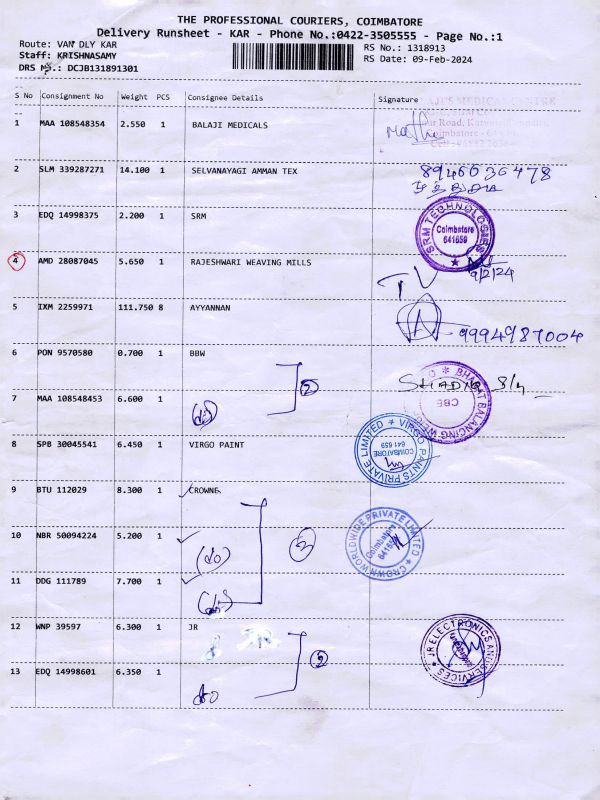 THE PROFESSIONAL COURIERS, COIMBATORE
Delivery Runsheet - KAR - Phone No.:0422-3505555 - Page No.:1
Route: VAN DLY KAR
RS No.: 1318913
Staff: KRISHNASAMY
RS Date: 09-Feb-2024
DRS No.: DCJB131891301
S No Consignment No Weight PCS Consignee Details Signature
1 MAA 108548354 2.550 1 BALAJI MEDICALS
2 SLM 339287271 14.100 1 SELVANAYAGI AMMAN TEX 8946636478
3 EDQ 14998375 2.200 1 SRM
SRM TECHNOLOGIES Coimbatore 641659
4 AMD 28087045 5.650 1 RAJESHWARI WEAVING MILLS
9/2/24
5 IXM 2259971 111.750 8 AYYANNAN
9994987004
6 PON 9570580 0.700 1 BBW
2
BHARAT BALANCING CBE
7 MAA 108548453 6.600 1 (do)
8 SPB 30045541 6.450 1 VIRGO PAINT
VIRGO PAINTS PRIVATE LIMITED COIMBATORE 641 659
9 BTU 112029 8.300 1 CROWNE
10 NBR 50094224 5.200 1 (do)
3
CROWN WORLDWIDE PRIVATE LIMITED Coimbatore 641659
11 DDG 111789 7.700 1 (do)
12 WNP 39597 6.300 1 JR
JR
2
JR ELECTRONICS AND SERVICES
13 EDQ 14998601 6.350 1 do